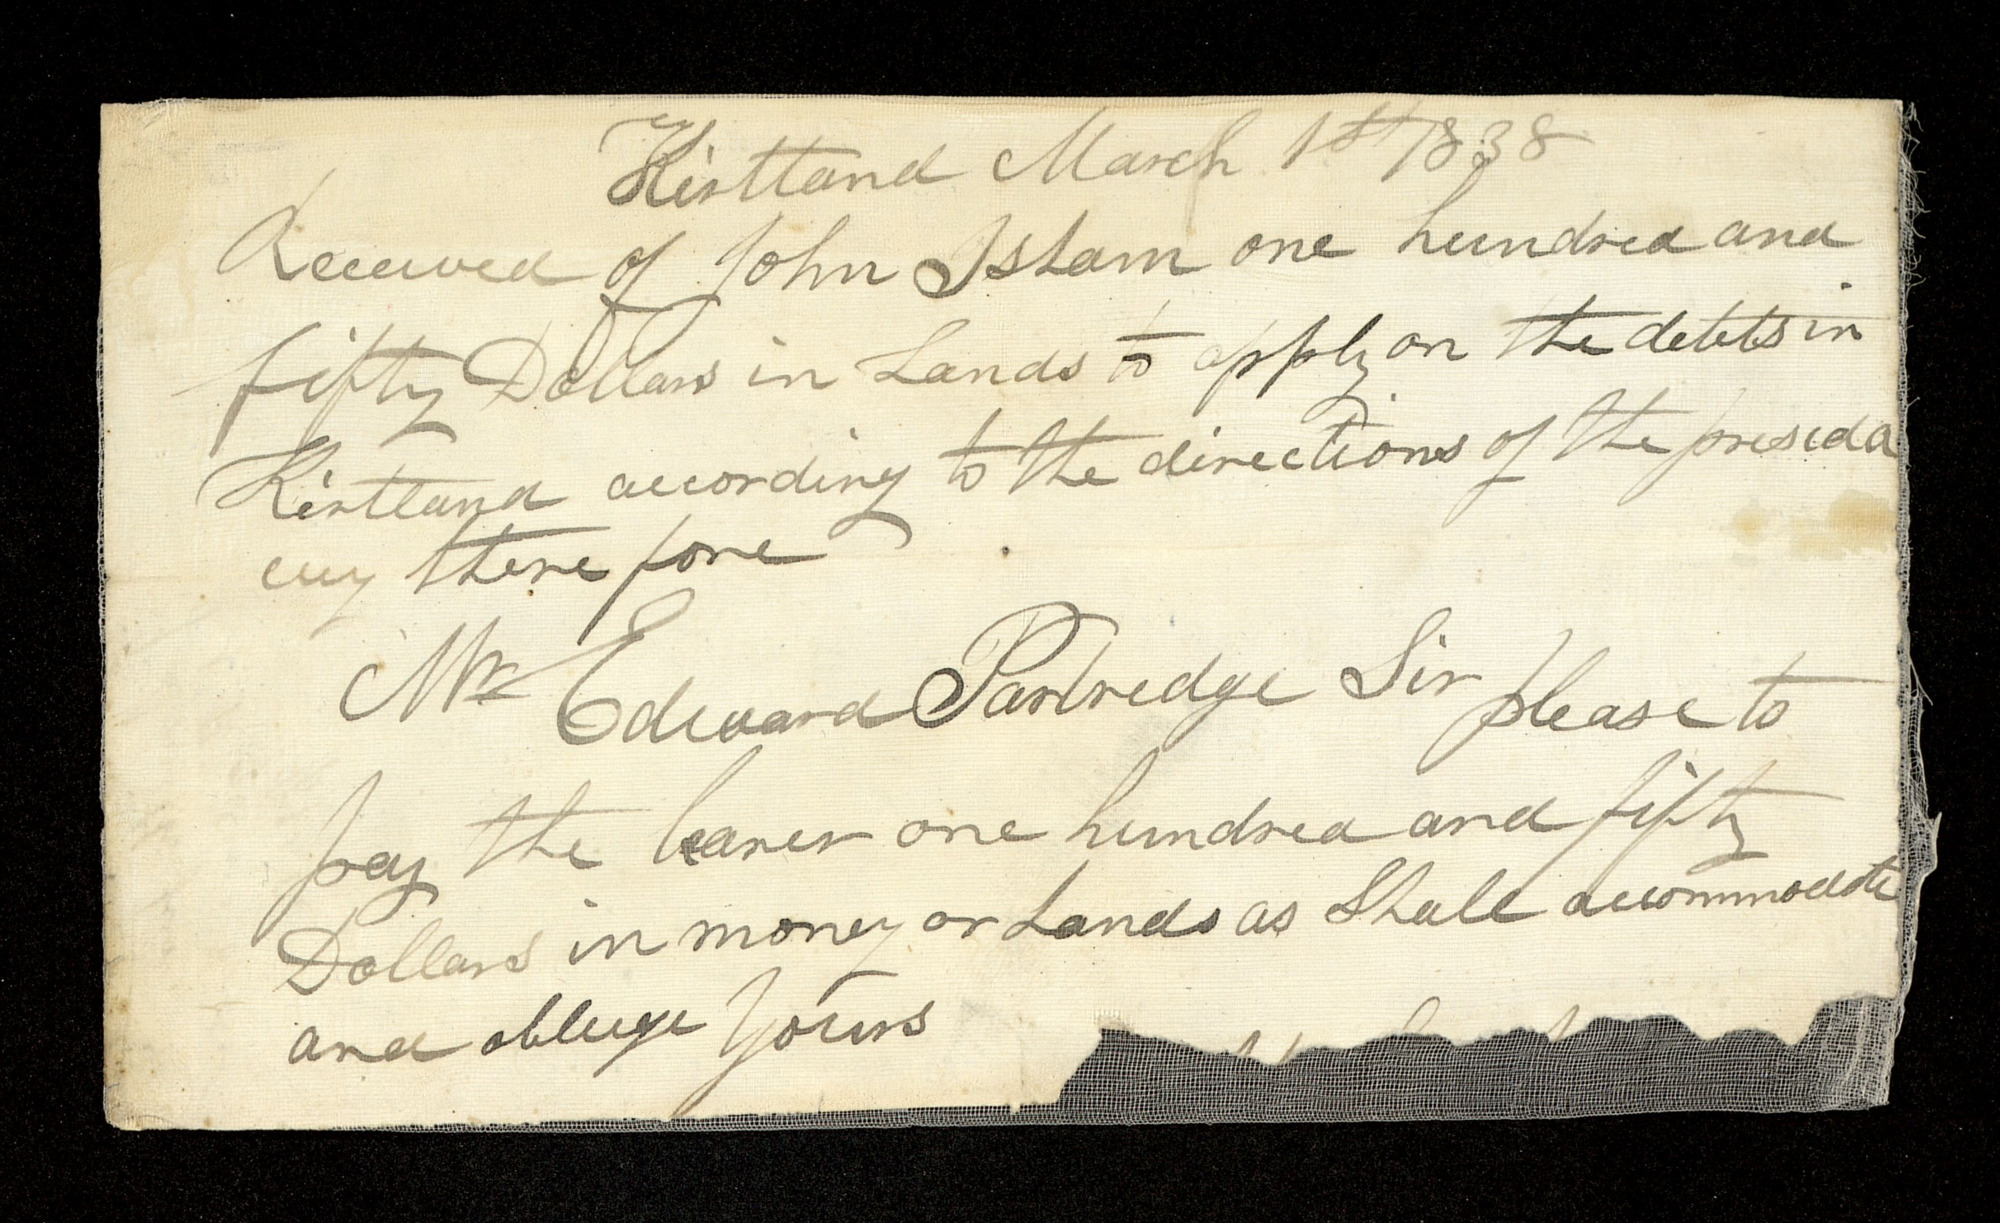 Kirtland March 1st 1838
Received of John Isham one hundred and
fifty Dollars in Lands to apply on the debts in
Kirtland according to the directions of the presida
cuy therefore
Mr Edward Partredge Sir please to
pay the bearer one hundred and fifty
Dollars in money or Lands as Shall accommodate
and obleige Yours